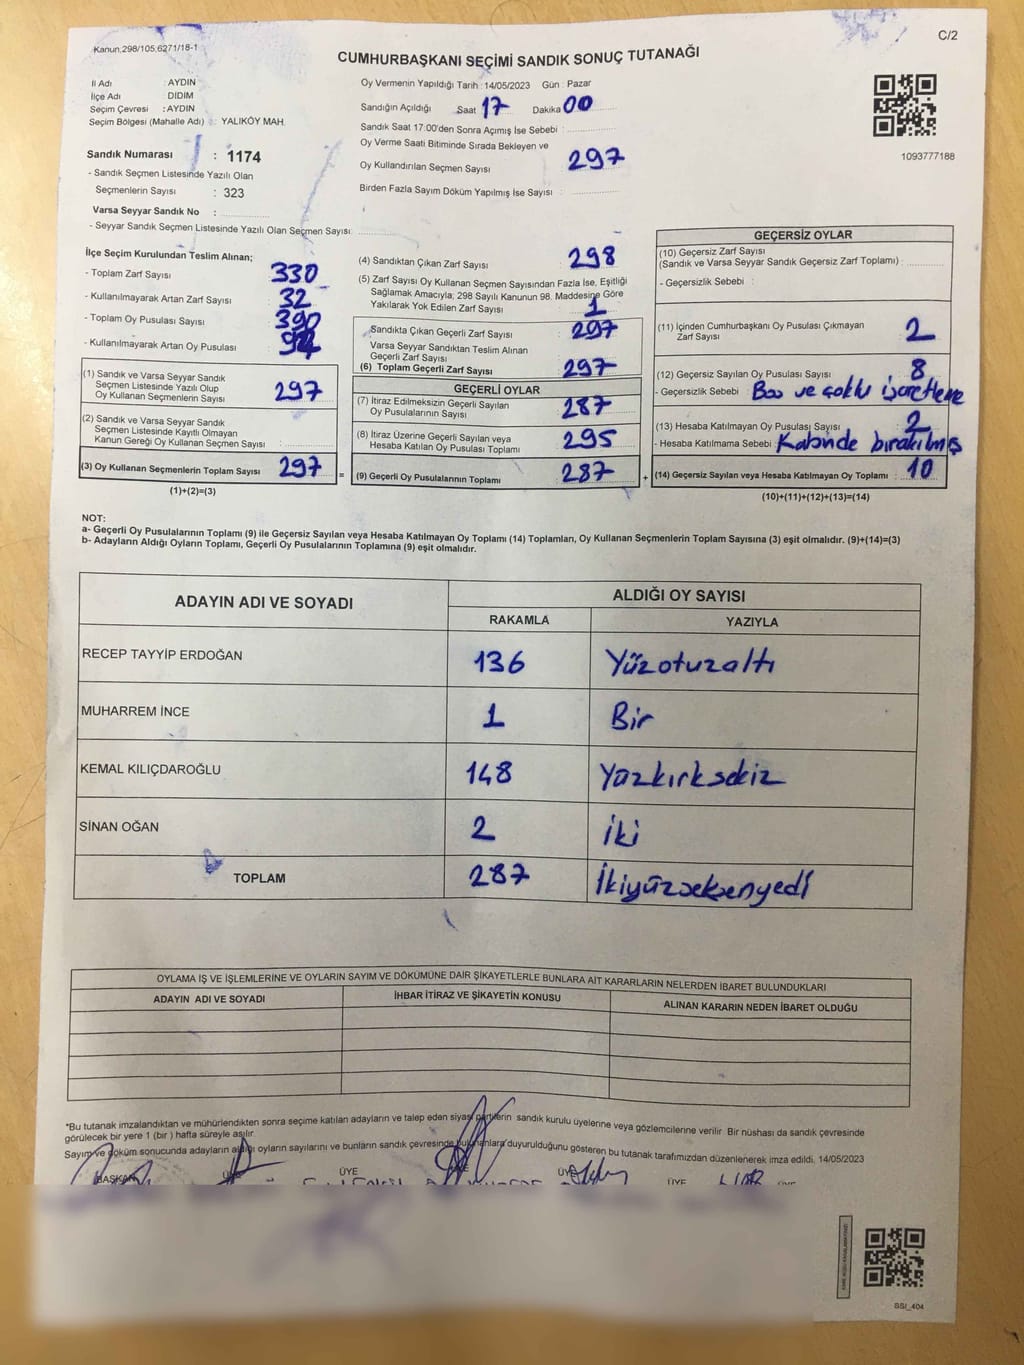 Kanun,298/105,6271/18-1
C/2
CUMHURBAŞKANI SEÇİMİ SANDIK SONUÇ TUTANAĞI
İl Adı : AYDIN
İlçe Adı DİDİM
Seçim Çevresi : AYDIN
Seçim Bölgesi (Mahalle Adı) : YALIKÖY MAH.
Oy Vermenin Yapıldığı Tarih : 14/05/2023 Gün : Pazar
Sandığın Açıldığı Saat 17 Dakika 00
Sandık Saat 17:00'den Sonra Açımış İse Sebebi :
Oy Verme Saati Bitiminde Sırada Bekleyen ve
Oy Kullandırılan Seçmen Sayısı 297
Birden Fazla Sayım Döküm Yapılmış İse Sayısı :
1093777188
Sandık Numarası : 1174
- Sandık Seçmen Listesinde Yazılı Olan
Seçmenlerin Sayısı : 323
Varsa Seyyar Sandık No :
- Seyyar Sandık Seçmen Listesinde Yazılı Olan Seçmen Sayısı:
İlçe Seçim Kurulundan Teslim Alınan;
- Toplam Zarf Sayısı 330
- Kullanılmayarak Artan Zarf Sayısı : 32
- Toplam Oy Pusulası Sayısı : 390
- Kullanılmayarak Artan Oy Pusulası
(1) Sandık ve Varsa Seyyar Sandık
Seçmen Listesinde Yazılı Olup
Oy Kullanan Seçmenlerin Sayısı 297
(2) Sandık ve Varsa Seyyar Sandık
Seçmen Listesinde Kayıtlı Olmayan
Kanun Gereği Oy Kullanan Seçmen Sayısı :
(3) Oy Kullanan Seçmenlerin Toplam Sayısı 297 =
(1)+(2)=(3)
(4) Sandıktan Çıkan Zarf Sayısı 298
(5) Zarf Sayısı Oy Kullanan Seçmen Sayısından Fazla İse, Eşitliği
Sağlamak Amacıyla; 298 Sayılı Kanunun 98. Maddesine Göre
Yakılarak Yok Edilen Zarf Sayısı : 1
Sandıkta Çıkan Geçerli Zarf Sayısı : 297
Varsa Seyyar Sandıktan Teslim Alınan
Geçerli Zarf Sayısı
(6) Toplam Geçerli Zarf Sayısı 297
GEÇERLİ OYLAR
(7) İtiraz Edilmeksizin Geçerli Sayılan
Oy Pusulalarının Sayısı : 287
(8) İtiraz Üzerine Geçerli Sayılan veya
Hesaba Katılan Oy Pusulası Toplamı 295
(9) Geçerli Oy Pusulalarının Toplamı 287 +
GEÇERSİZ OYLAR
(10) Geçersiz Zarf Sayısı
(Sandık ve Varsa Seyyar Sandık Geçersiz Zarf Toplamı) :
- Geçersizlik Sebebi :
(11) İçinden Cumhurbaşkanı Oy Pusulası Çıkmayan
Zarf Sayısı 2
(12) Geçersiz Sayılan Oy Pusulası Sayısı 8
- Geçersizlik Sebebi : Boş ve çoklu işaretleme
(13) Hesaba Katılmayan Oy Pusulası Sayısı : 2
- Hesaba Katılmama Sebebi : Kabinde bırakılmış
(14) Geçersiz Sayılan veya Hesaba Katılmayan Oy Toplamı : 10
(10)+(11)+(12)+(13)=(14)
NOT:
a- Geçerli Oy Pusulalarının Toplamı (9) ile Geçersiz Sayılan veya Hesaba Katılmayan Oy Toplamı (14) Toplamları, Oy Kullanan Seçmenlerin Toplam Sayısına (3) eşit olmalıdır. (9)+(14)=(3)
b- Adayların Aldığı Oyların Toplamı, Geçerli Oy Pusulalarının Toplamına (9) eşit olmalıdır.
ADAYIN ADI VE SOYADI ALDIĞI OY SAYISI
RAKAMLA YAZIYLA
RECEP TAYYİP ERDOĞAN 136 Yüzotuzaltı
MUHARREM İNCE 1 Bir
KEMAL KILIÇDAROĞLU 148 Yüzkırksekiz
SİNAN OĞAN 2 İki
TOPLAM 287 İkiyüzseksenyedi
OYLAMA İŞ VE İŞLEMLERİNE VE OYLARIN SAYIM VE DÖKÜMÜNE DAİR ŞİKAYETLERLE BUNLARA AİT KARARLARIN NELERDEN İBARET BULUNDUKLARI
ADAYIN ADI VE SOYADI İHBAR İTİRAZ VE ŞİKAYETİN KONUSU ALINAN KARARIN NEDEN İBARET OLDUĞU
*Bu tutanak imzalandıktan ve mühürlendikten sonra seçime katılan adayların ve talep eden siyasi partilerin sandık kurulu üyelerine veya gözlemcilerine verilir. Bir nüshası da sandık çevresinde
görülecek bir yere 1 (bir ) hafta süreyle asılır.
Sayım ve döküm sonucunda adayların aldığı oyların sayılarını ve bunların sandık çevresinde bulunanlara duyurulduğunu gösteren bu tutanak tarafımızdan düzenlenerek imza edildi. 14/05/2023
BAŞKAN ÜYE ÜYE ÜYE ÜYE ÜYE
SSI_404